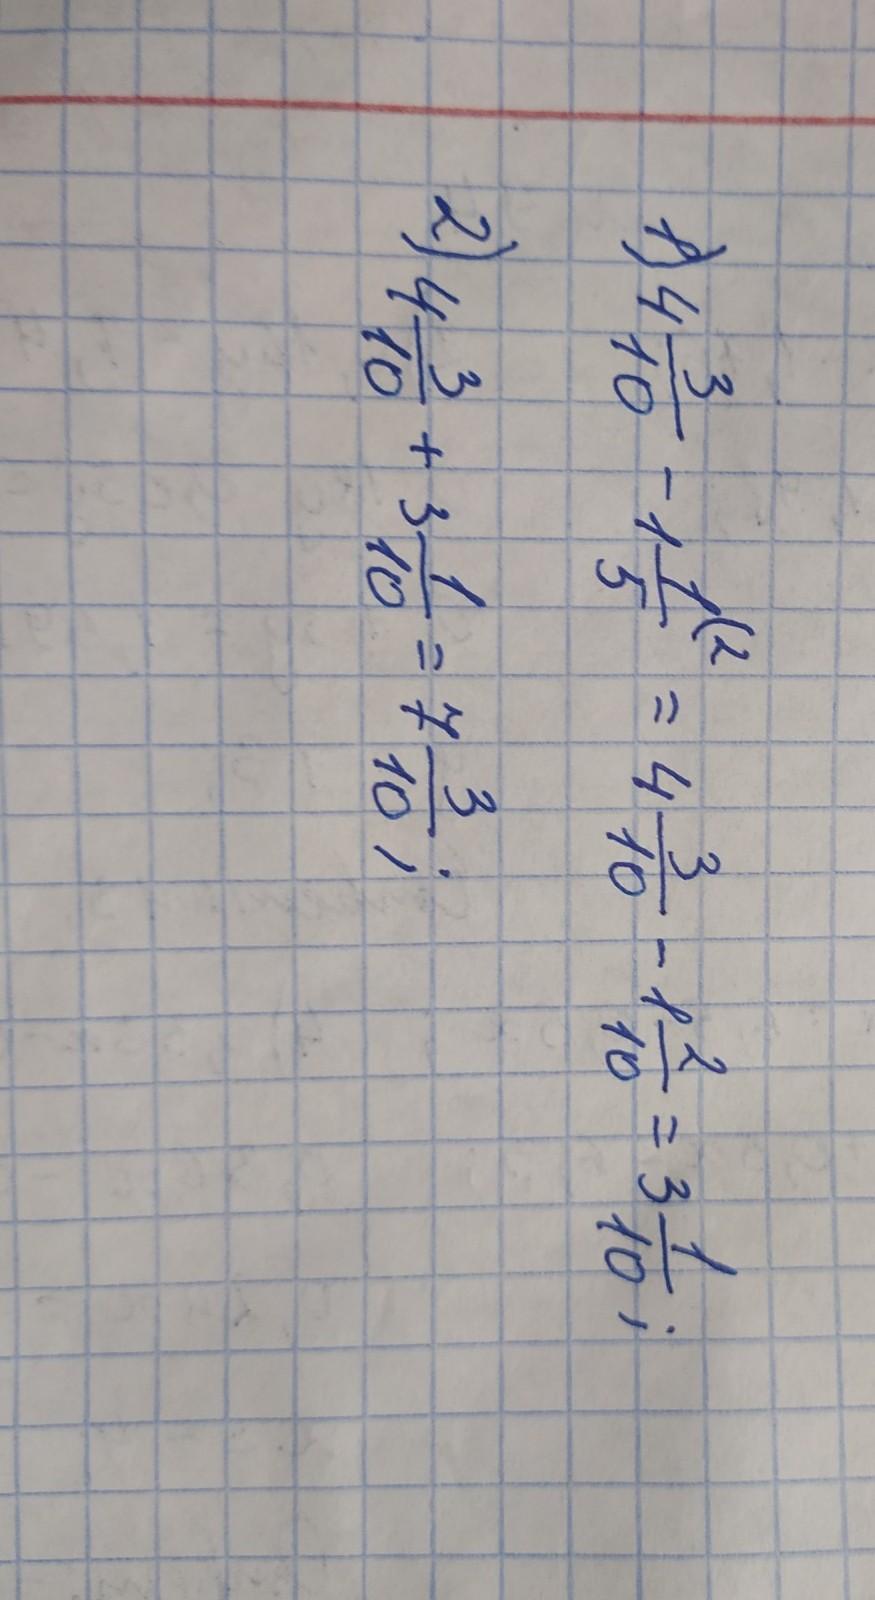 1) 4 3/10 - 1 1/5 (2 = 4 3/10 - 1 2/10 = 3 1/10;
2) 4 3/10 + 3 1/10 = 7 3/10;